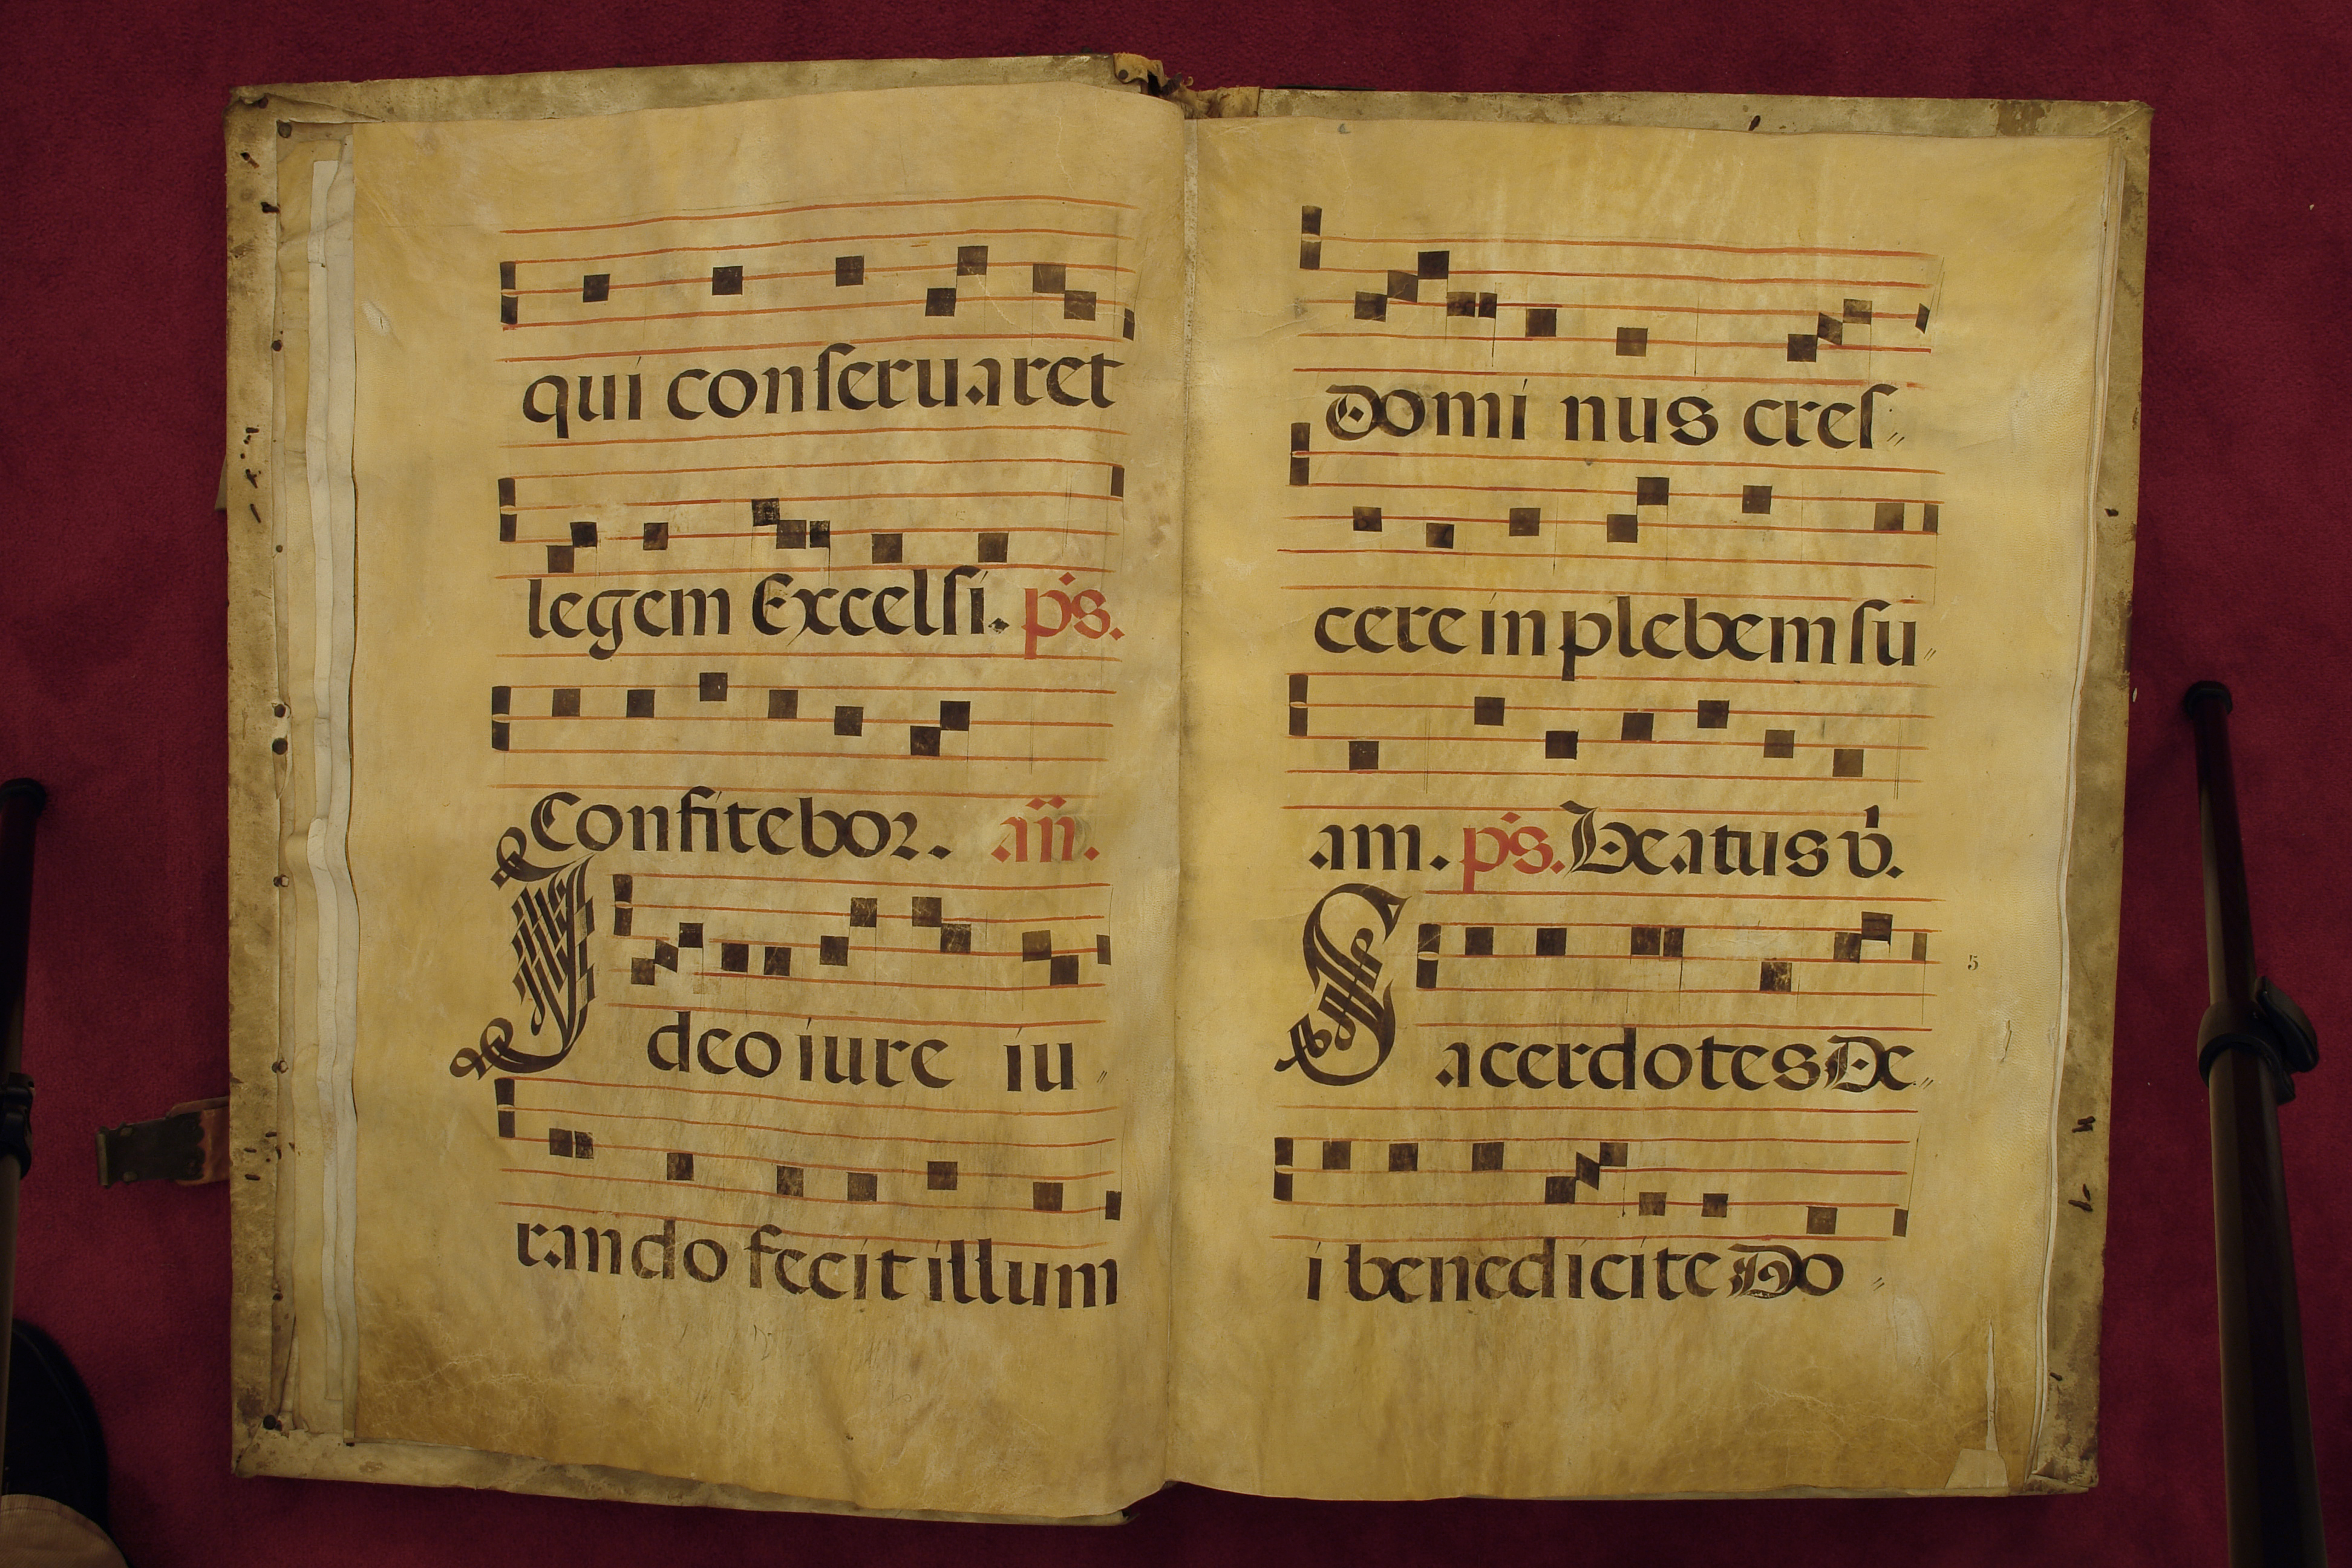 qui conſeruaret
legem Excelſi. p̄s.
Confitebor. añ.
Ideo iure iu〃
rando fecit illum
Domi nus creſ〃
cere in plebem ſu〃
am. p̄s. Beatus v̇.
Sacerdotes De〃
i benedicite Do〃
5